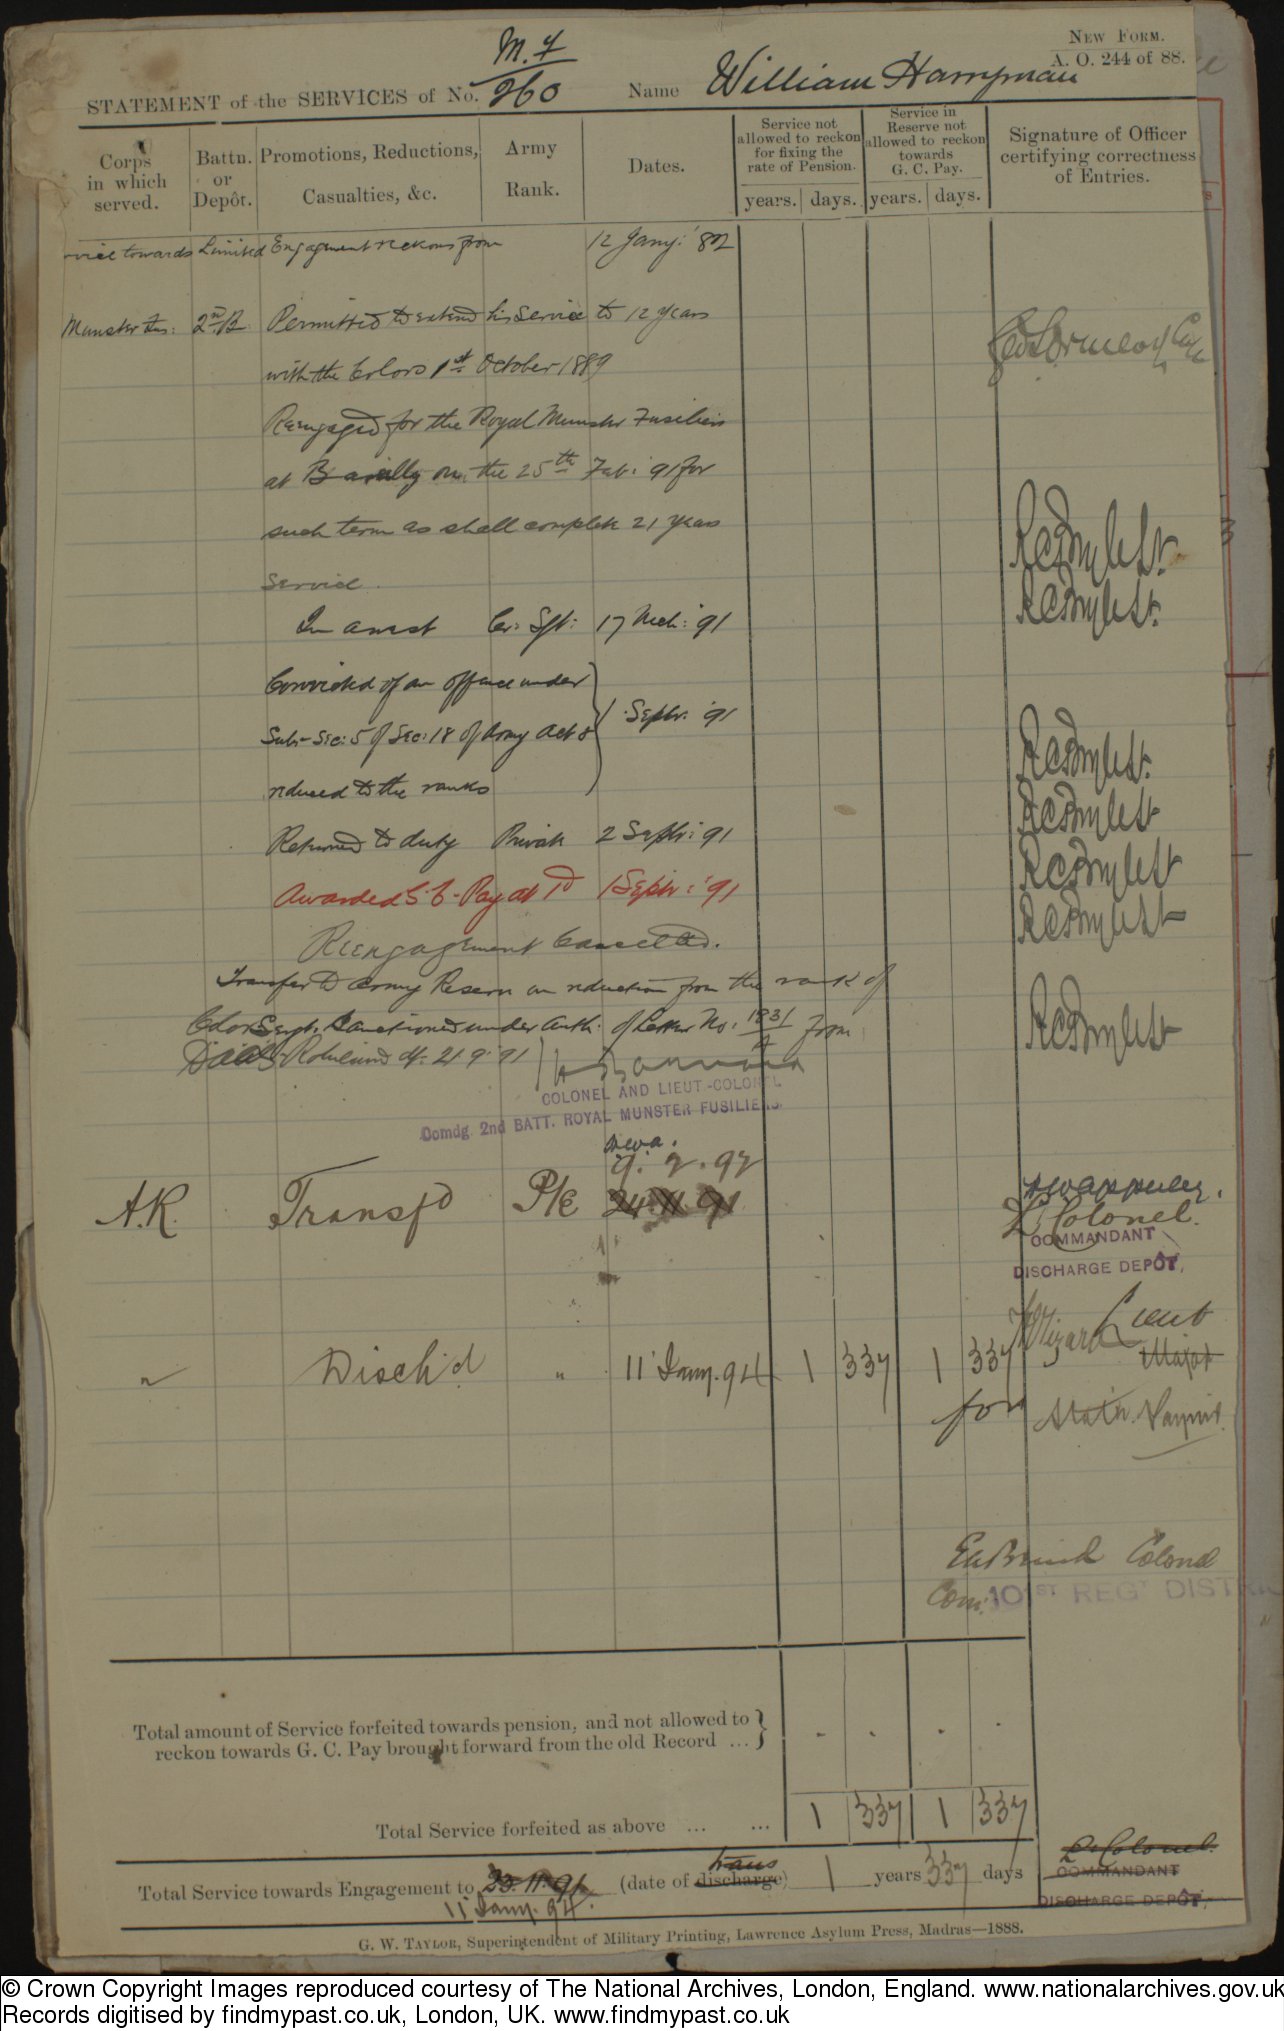 NEW FORM.
A. O. 244 of 88.
STATEMENT of the SERVICES of No. M.F/260 Name William Hampman
Corps in which served.
Battn. or Depôt.
Promotions, Reductions, Casualties, &c.
Army Rank.
Dates.
Service not allowed to reckon for fixing the rate of Pension.
Service in Reserve not allowed to reckon towards G. C. Pay.
Signature of Officer certifying correctness of Entries.
years. days. years. days.
vice towards Limited Engagement reckons from 12 Jany: '82
Munster Fus: 2nd B. Permitted to extend his Service to 12 years
with the Colors 1st October 1889
Reengaged for the Royal Munster Fusiliers
at Bareilly on the 25th Feb: 91 for
such term as shall complete 21 years
service.
In arrest Cr: Sgt: 17 Mch: 91
Convicted of an offence under
Sub-Sec: 5 of Sec: 18 of Army Act & 1 Septr. 91
reduced to the ranks
Returned to duty Private 2 Septr: 91
Awarded G. C. Pay at 1d 1 Septr: '91
Reengagement Cancelled.
Transfer to Army Reserve on reduction from the rank of
Color Sergt. Sanctioned under auth. of Letter No. 1831/A from
D.A.A.G. Rohilcund d/- 21.9.91
COLONEL AND LIEUT.-COLONEL
Comdg. 2nd BATT. ROYAL MUNSTER FUSILIERS
9. 2. 92
A.R. Transfd Pte 24.11.91
Lt Colonel.
COMMANDANT
DISCHARGE DEPÔT,
" Disch'd " 11 Jany. 94 1 337 1 337
Lieut
Major
for
Colonel
Com. 101ST REGT DISTRIC
Total amount of Service forfeited towards pension, and not allowed to
reckon towards G. C. Pay brought forward from the old Record ... } - - - -
Total Service forfeited as above ... ... 1 337 1 337
Lt Colonel.
COMMANDANT
DISCHARGE DEPÔT,
trans
Total Service towards Engagement to 23.11.91 (date of discharge) 1 years 337 days
11 Jany. 94.
G. W. TAYLOR, Superintendent of Military Printing, Lawrence Asylum Press, Madras—1888.
© Crown Copyright Images reproduced courtesy of The National Archives, London, England. www.nationalarchives.gov.uk
Records digitised by findmypast.co.uk, London, UK. www.findmypast.co.uk